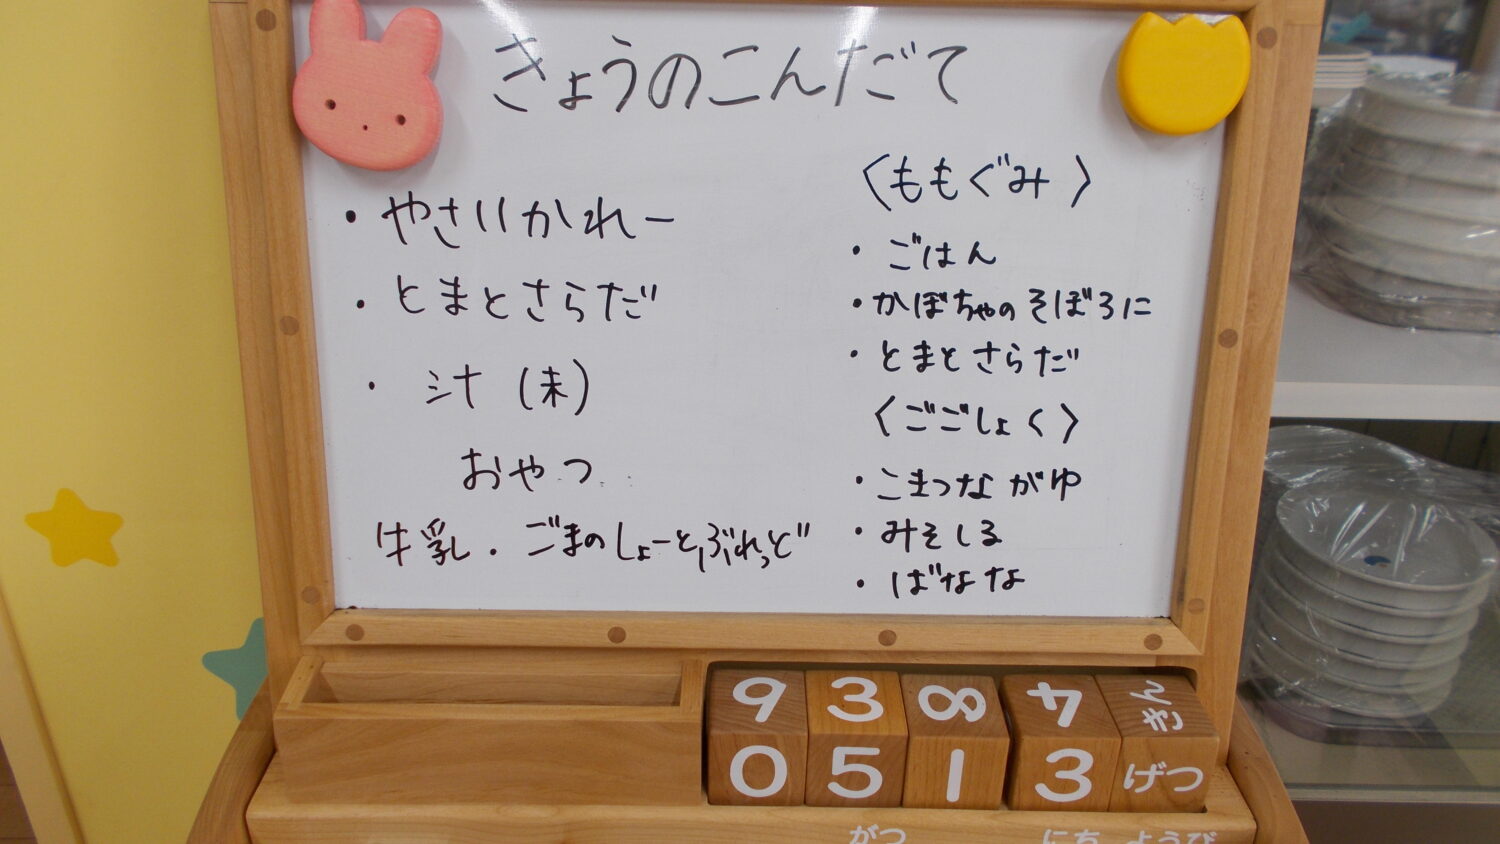 きょうのこんだて
・やさいかれー
・とまとさらだ
・汁(末)
おやつ
牛乳・ごまのしょーとぶれっど
〈ももぐみ〉
・ごはん
・かぼちゃのそぼろに
・とまとさらだ
〈ごごしょく〉
・こまつながゆ
・みそしる
・ばなな
6 3 8 4 きん
0 5 1 3 げつ
がつ にち ようび